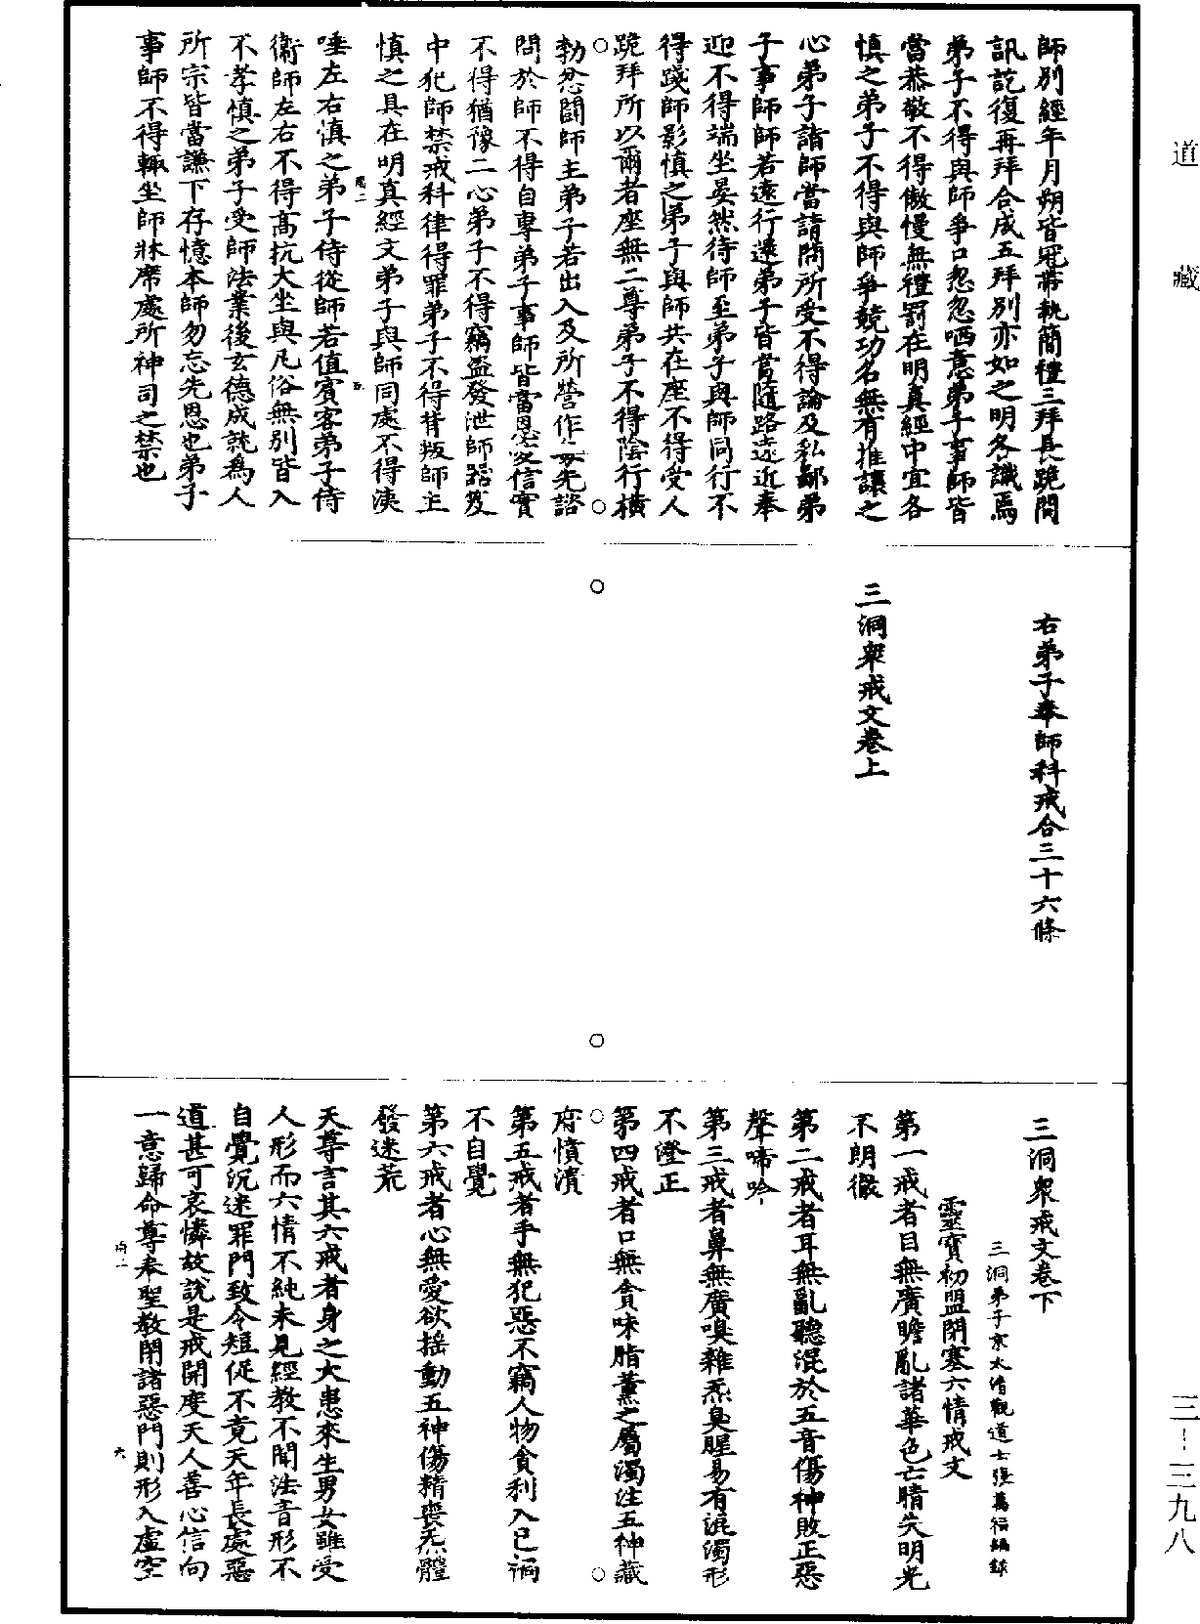 道藏
師別經年月朔皆冠帶執簡禮三拜長跪問
訊訖復再拜合成五拜別亦如之明各識焉
弟子不得與師爭口忽忽哂意弟子事師皆
當恭敬不得傲慢無禮罰在明真經中宜各
慎之弟子不得與師爭競功名無有推讓之
心弟子詣師當請問所受不得論及私鄙弟
子事師師若遠行還弟子皆當隨路遠近奉
迎不得端坐晏然待師至弟子與師同行不
得踐師影慎之弟子與師共在座不得受人
跪拜所以爾者座無二尊弟子不得陰行橫
勃忿鬪師主弟子若出入及所營作皆先諮
問於師不得自專弟子事師皆當恩愛信實
不得猶豫二心弟子不得竊盜發泄師器笈
中犯師禁戒科律得罪弟子不得背叛師主
慎之具在明真經文弟子與師同處不得洟
唾左右慎之弟子侍從師若值賓客弟子侍
衛師左右不得高抗大坐與凡俗無別皆入
不孝慎之弟子受師法業後玄德成就為人
所宗皆當謙下存憶本師勿忘先恩也弟子
事師不得輒坐師牀席處所神司之禁也
右弟子奉師科戒合三十六條
三洞衆戒文卷上
三洞衆戒文卷下
三洞弟子京太清觀道士張萬福編錄
靈寶初盟閉塞六情戒文
第一戒者目無廣瞻亂諸華色亡睛失明光
不朗徹
第二戒者耳無亂聽混於五音傷神敗正惡
聲啼吟
第三戒者鼻無廣嗅雜炁臭腥易有混濁形
不澄正
第四戒者口無貪味脂薰之屬濁注五神藏
府憤潰
第五戒者手無犯惡不竊人物貪利入已禍
不自覺
第六戒者心無愛欲搖動五神傷精喪炁體
發迷荒
天尊言其六戒者身之大患來生男女雖受
人形而六情不純未見經教不聞法音形不
自覺沉迷罪門致令短促不竟天年長處惡
道甚可哀憐故說是戒開度天人善心信向
一意歸命尊奉聖教閉諸惡門則形入虛空
三-三九八